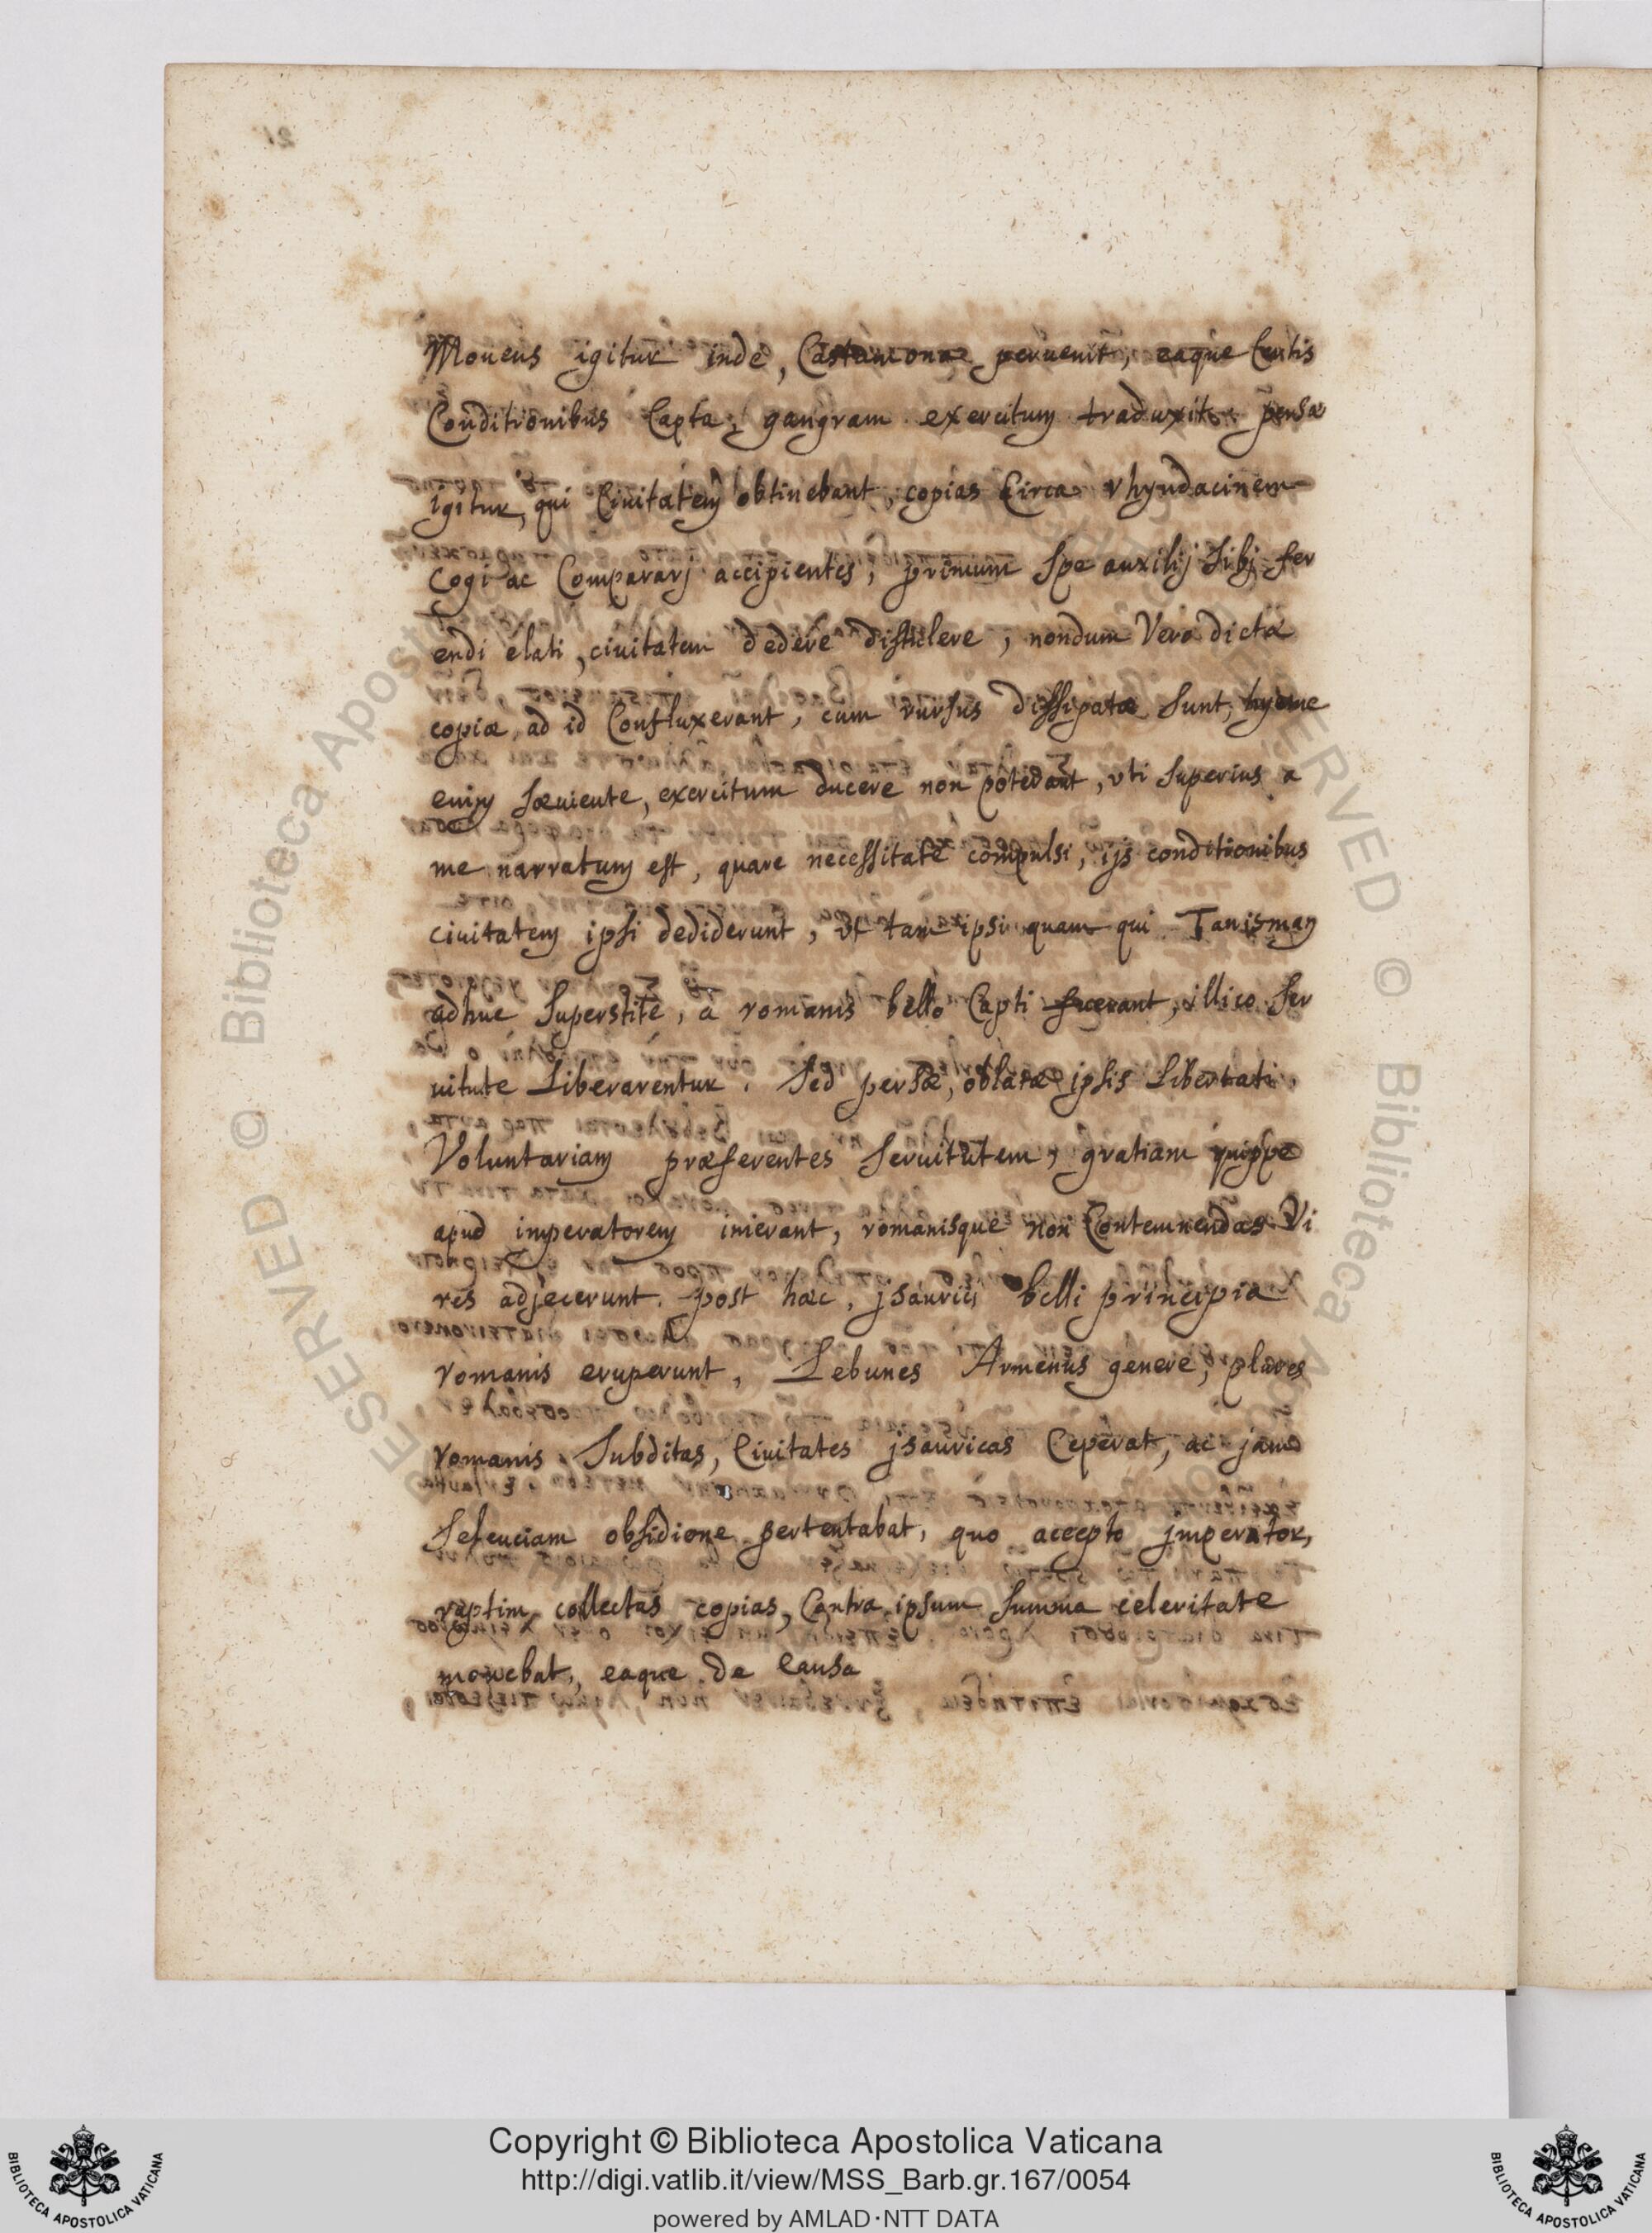 Mouens igitur inde, Castamonæ peruenit, eaque Certis
Conditionibus Capta, gangram exercitum traduxit. persæ
igitur, qui Ciuitatem obtinebant, copias Circa rhyndacinem
cogi ac Comparari accipientes, primum spe auxilij sibj fer
endi elati, ciuitatem dedere distulere, nondum Vero dictæ
copiæ, ad id Confluxerant, cum rursus dissipatæ sunt, hyeme
enim sæuiente, exercitum ducere non poterant, vti superius a
me narratum est, quare necessitate compulsi, ijs conditionibus
ciuitatem ipsi dediderunt, vt tam ipsi quam qui Tanisman
adhuc superstite, a romanis bello Capti fuerant, illico ser
uitute Liberarentur. Sed persæ, oblatæ ipsis Libertati
Voluntariam præferentes seruitutem, gratiam quippe
apud imperatorem inierant, romanisque non Contemnendas Vi
res adjecerunt. post hæc, jsaurici belli principia
romanis eruperunt, Lebunes Armenus genere, plures
romanis Subditas, Ciuitates jsauricas Ceperat, ac jam
Seleuciam obsidione pertentabat, quo accepto jmperator,
raptim collectas copias, Contra ipsum summa celeritate
mouebat, eaque de Causa
Copyright © Biblioteca Apostolica Vaticana
http://digi.vatlib.it/view/MSS_Barb.gr.167/0054
powered by AMLAD·NTT DATA
BIBLIOTECA APOSTOLICA VATICANA
BIBLIOTECA APOSTOLICA VATICANA